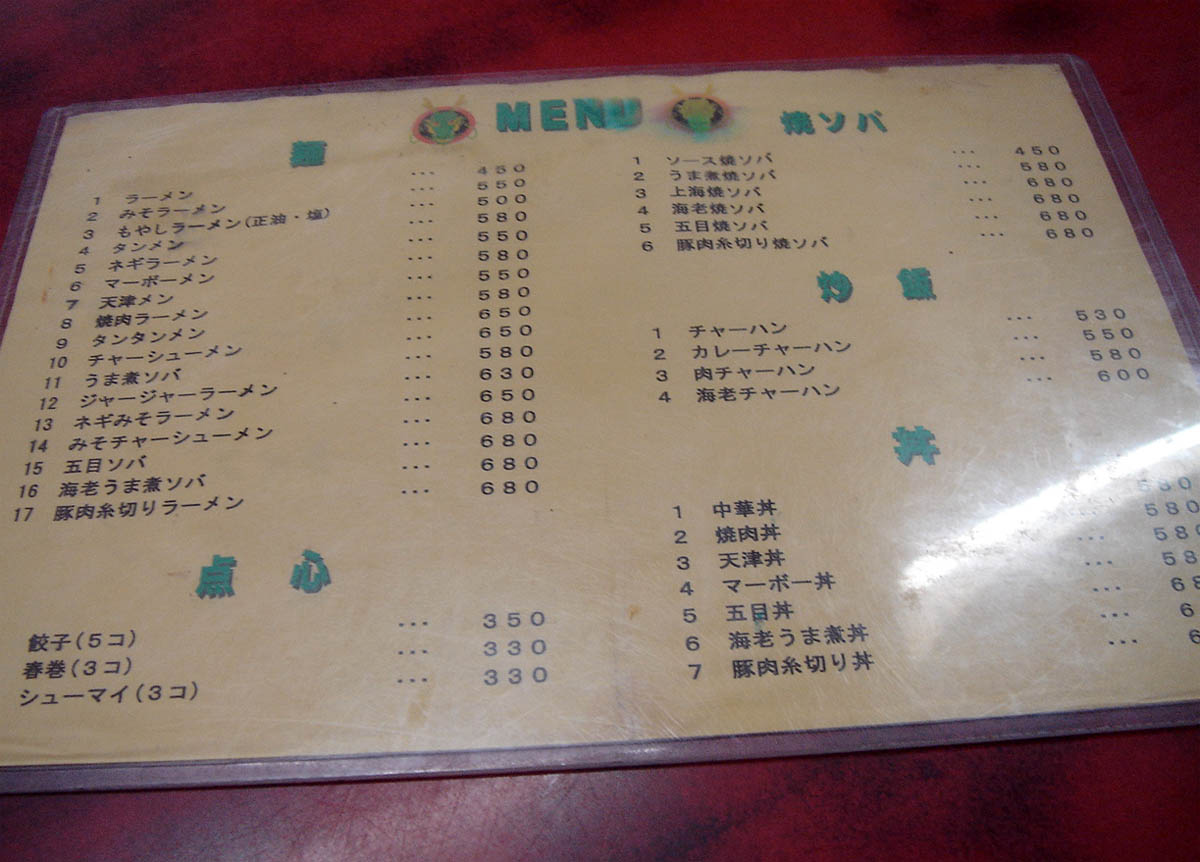 MENU
麺
1 ラーメン … 450
2 みそラーメン … 550
3 もやしラーメン(正油・塩) … 500
4 タンメン … 580
5 ネギラーメン … 550
6 マーボーメン … 580
7 天津メン … 550
8 焼肉ラーメン … 580
9 タンタンメン … 650
10 チャーシューメン … 650
11 うま煮ソバ … 580
12 ジャージャーラーメン … 630
13 ネギみそラーメン … 650
14 みそチャーシューメン … 680
15 五目ソバ … 680
16 海老うま煮ソバ … 680
17 豚肉糸切りラーメン … 680
点心
餃子(5コ) … 350
春巻(3コ) … 330
シューマイ(3コ) … 330
焼ソバ
1 ソース焼ソバ … 450
2 うま煮焼ソバ … 580
3 上海焼ソバ … 680
4 海老焼ソバ … 680
5 五目焼ソバ … 680
6 豚肉糸切り焼ソバ … 680
炒飯
1 チャーハン … 530
2 カレーチャーハン … 550
3 肉チャーハン … 580
4 海老チャーハン … 600
丼
1 中華丼 580
2 焼肉丼 580
3 天津丼 … 580
4 マーボー丼 … 58
5 五目丼 … 68
6 海老うま煮丼 … 6
7 豚肉糸切り丼 … 6